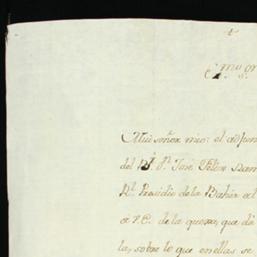 Exmo. Sor.
Mui señor mio: el adjun
del Pe. Dn. José Félix Ram
Rl. Presidio de la Bahia al
a V.E. de la quexa, que dà
la, sobre lo que en ellas se